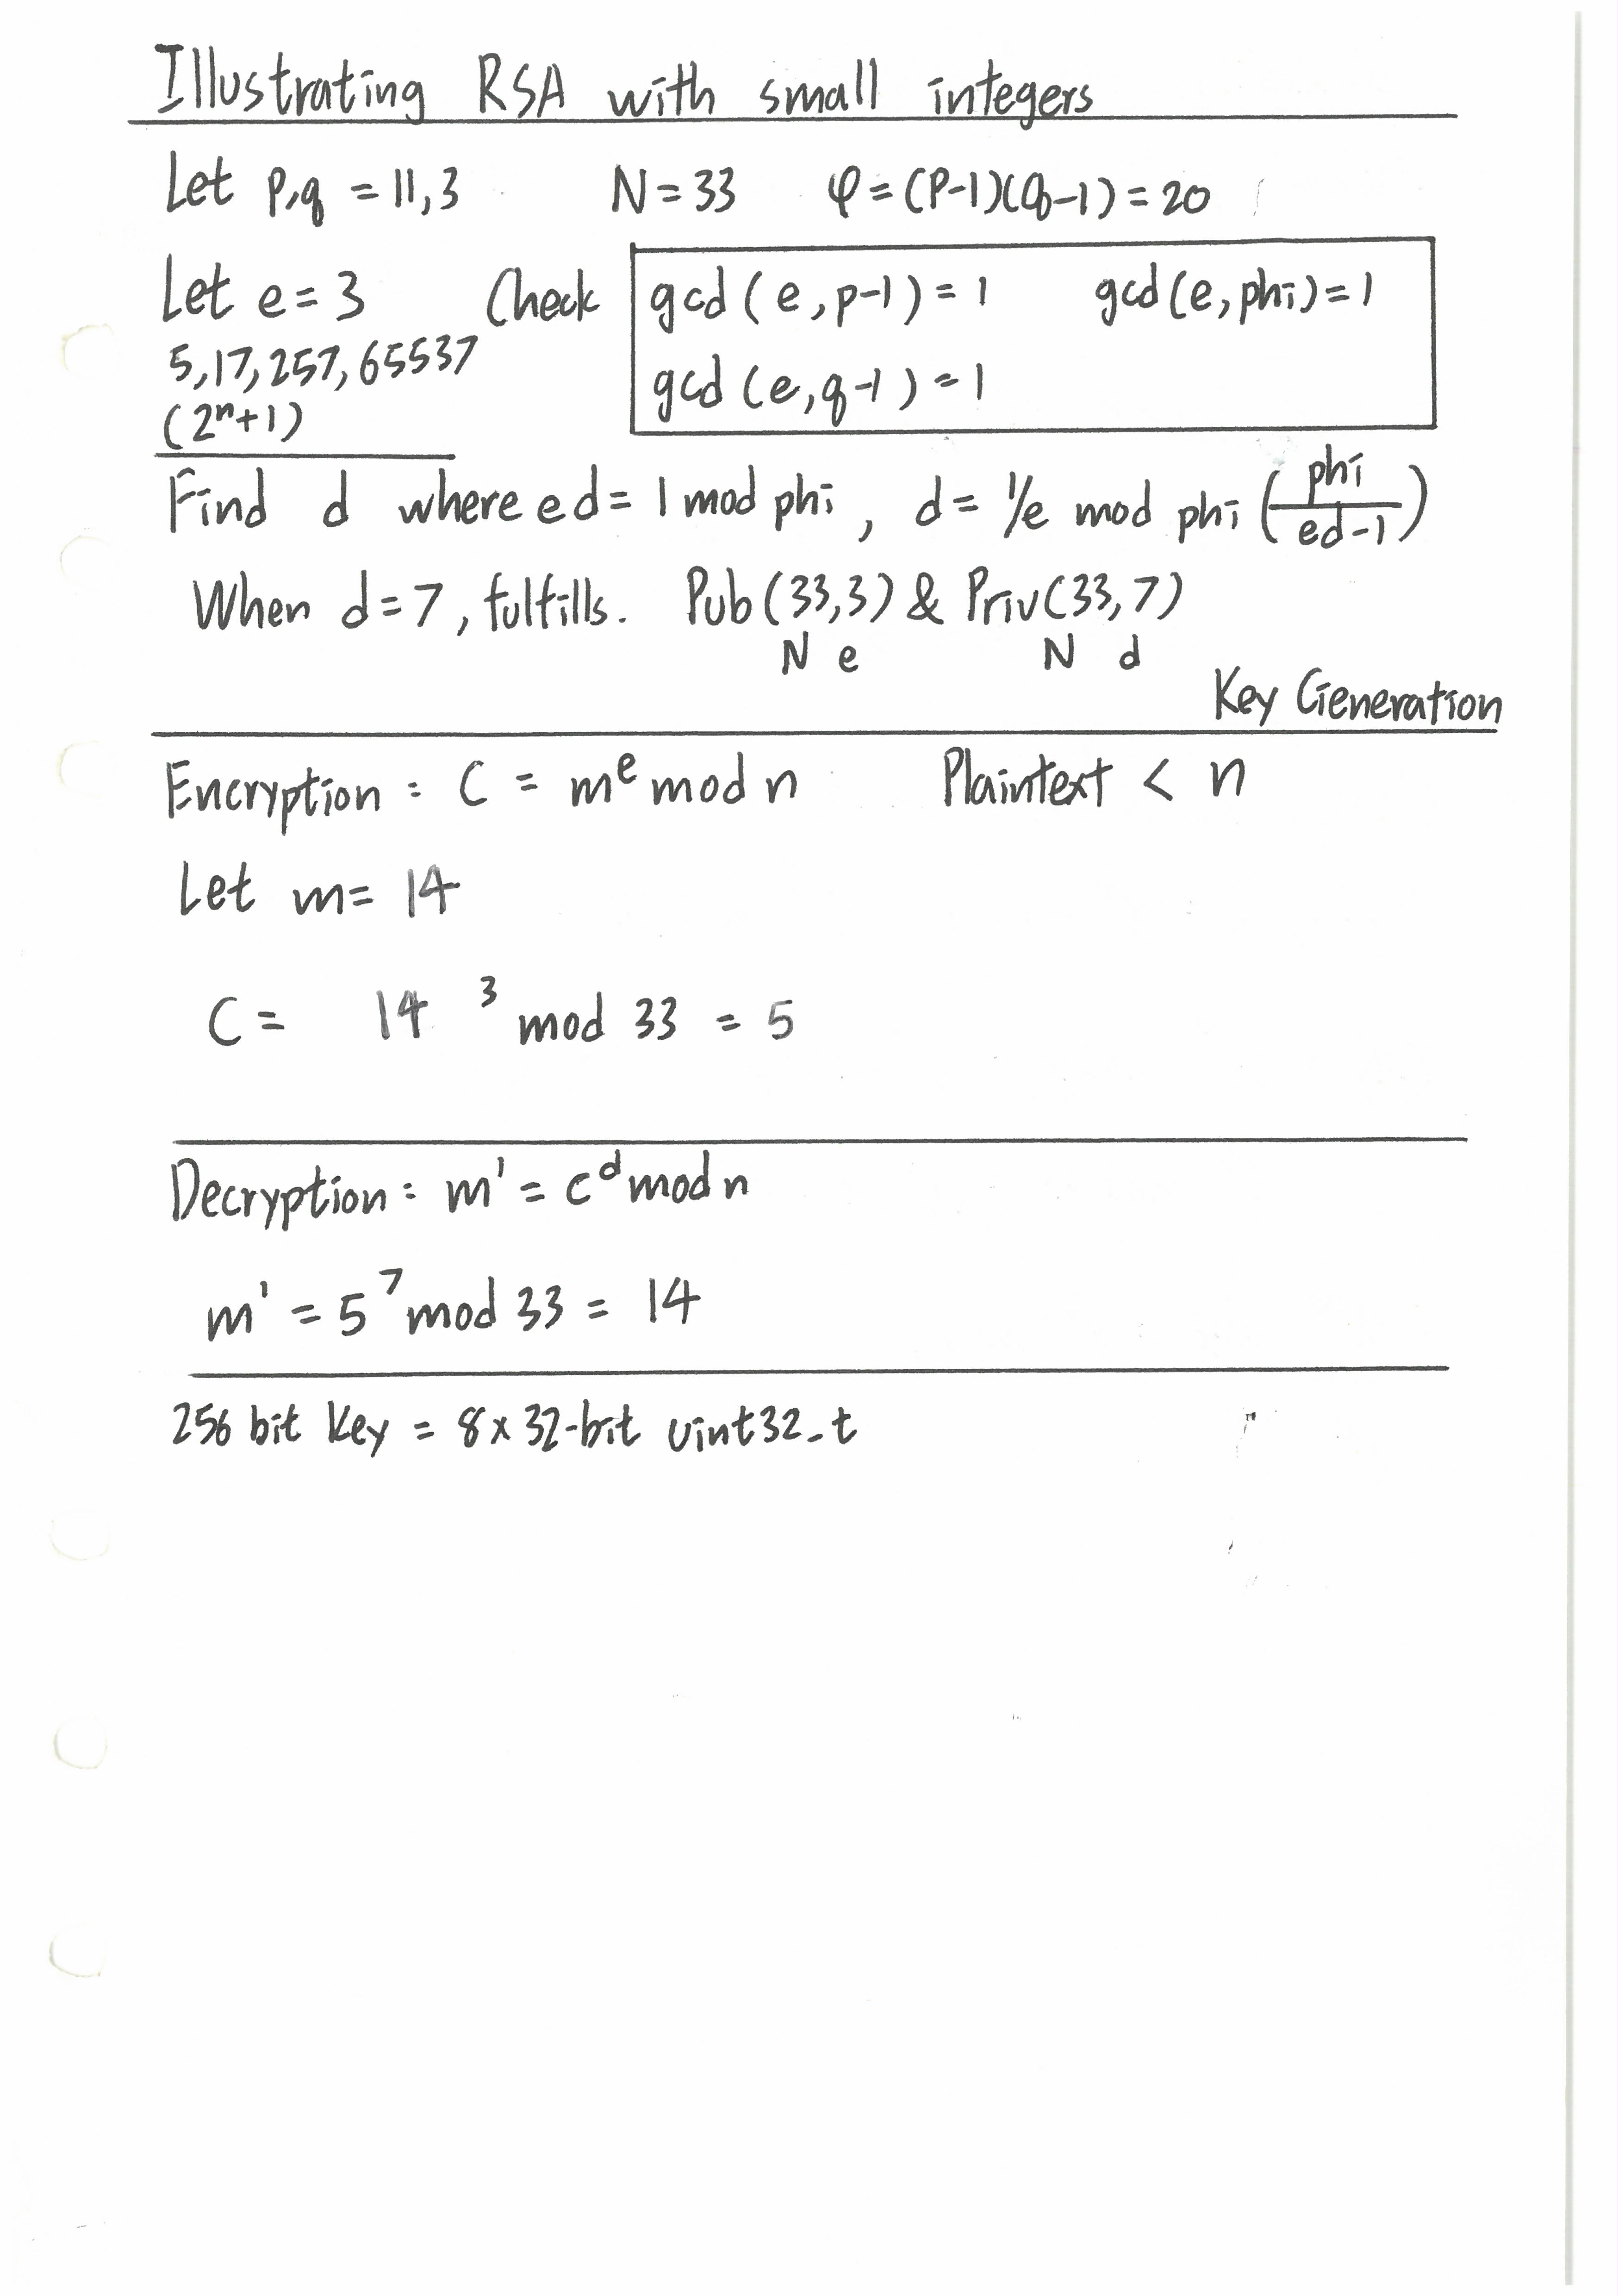 Illustrating RSA with small integers
Let p,q = 11,3 N = 33 φ = (P-1)(q-1) = 20
Let e = 3 Check gcd (e, p-1) = 1 gcd (e, phi) = 1
5, 17, 257, 65537 gcd (e, q-1) = 1
(2ⁿ+1)
Find d where ed = 1 mod phi, d = 1/e mod phi (phi/ed-1)
When d = 7, fulfills. Pub (33,3) & Priv (33,7)
N e N d
Key Generation
Encryption : C = mᵉ mod n Plaintext < n
Let m = 14
C = 14 ³ mod 33 = 5
Decryption : m' = cᵈ mod n
m' = 5⁷ mod 33 = 14
256 bit key = 8 x 32-bit uint32_t